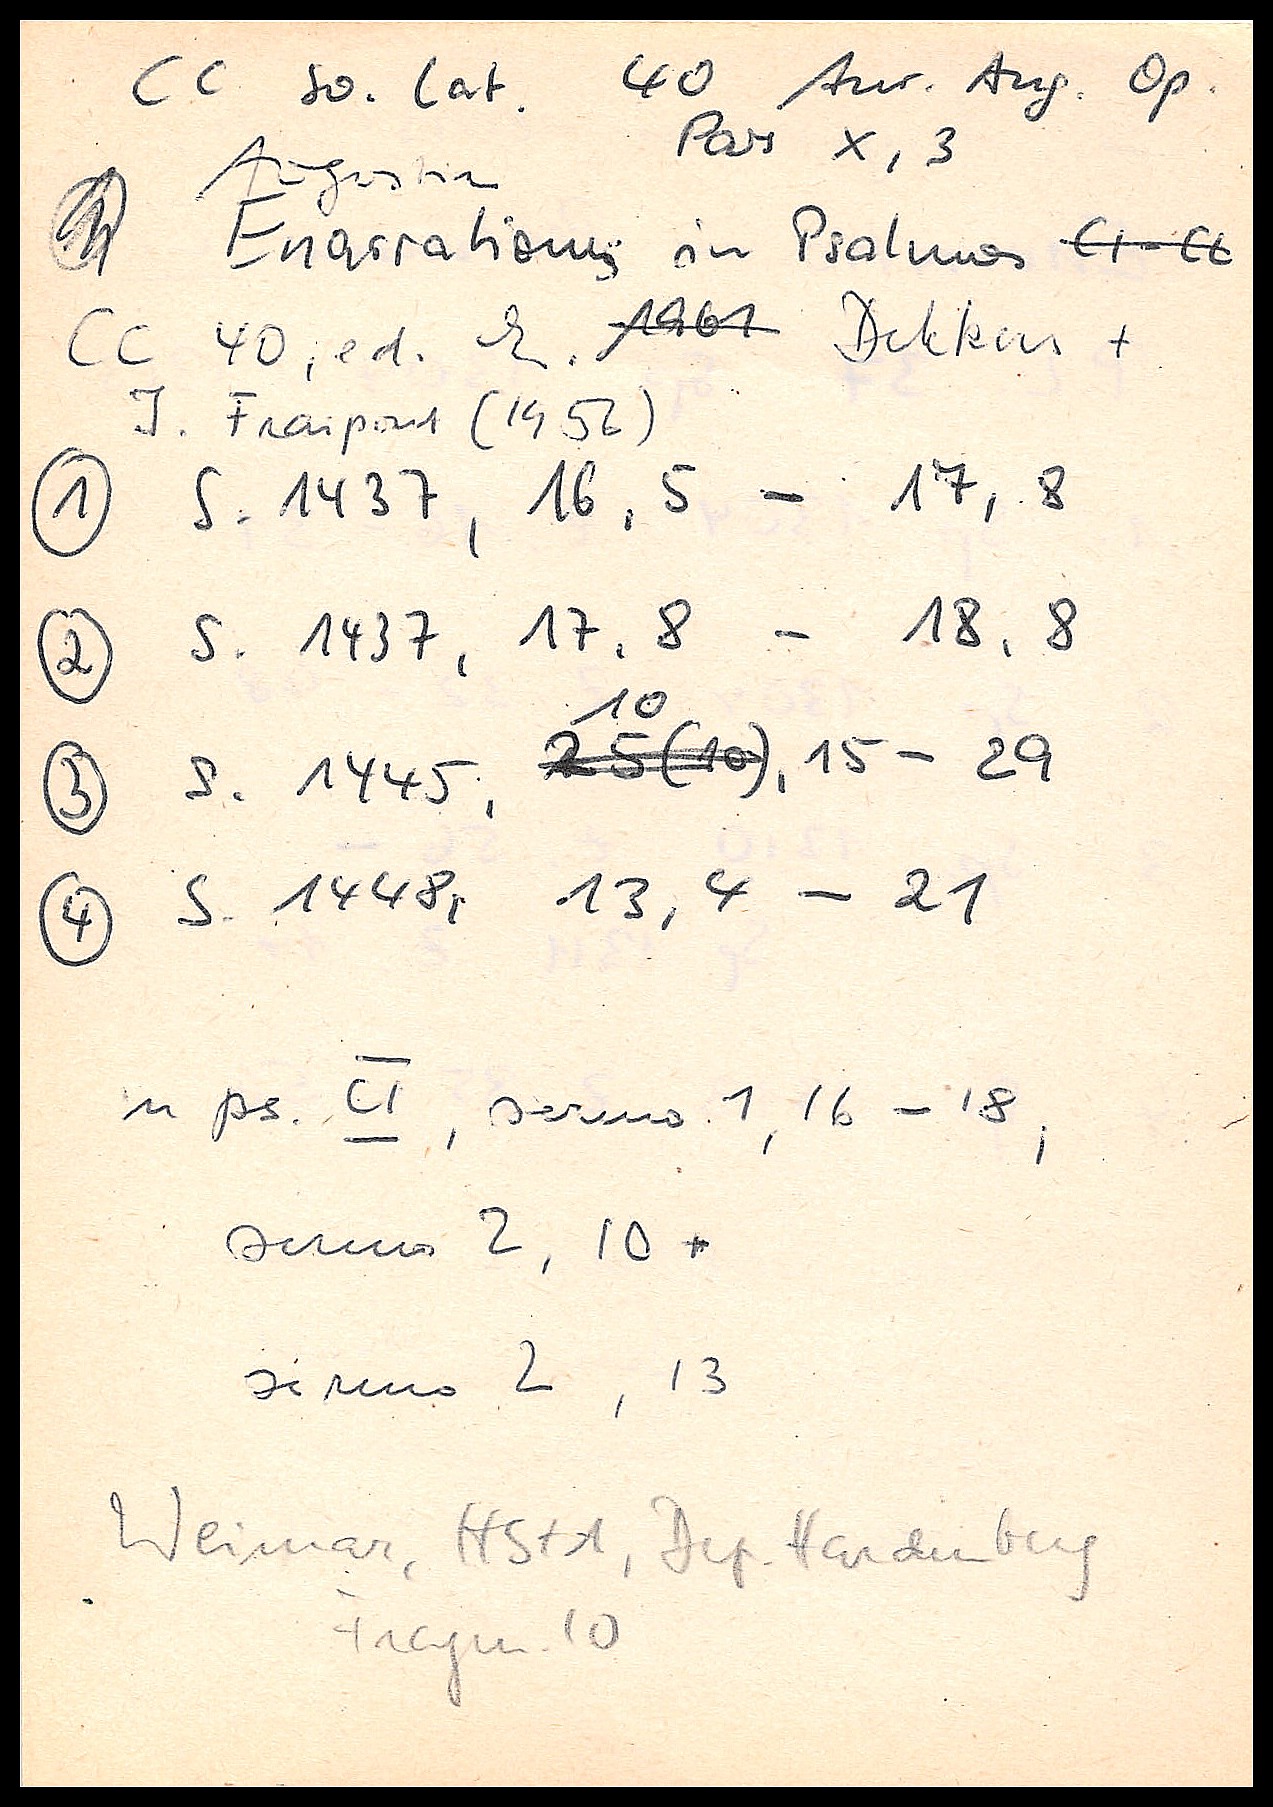 CC so. lat. 40 Aur. Aug. Op.
Pars X, 3
Augustin
Enarrationes in Psalmos CI - CL
CC 40, ed. E. 1961 Dekkers +
J. Fraipont (1952)
1 S. 1437, 16, 5 - 17, 8
2 S. 1437, 17, 8 - 18, 8
10
3 S. 1445, 25(10), 15 - 29
4 S. 1448, 13, 4 - 21
in ps. CI, sermo 1, 16 - 18,
sermo 2, 10 +
sermo 2, 13
Weimar, HStA, Dep. Hardenberg
Fragm. 10